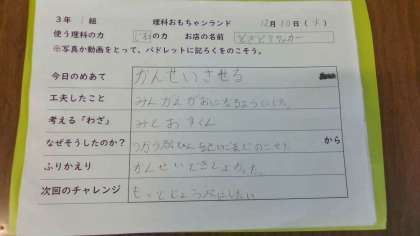 3年 1組 理科おもちゃランド 12月10日(火)
使う理科の力 の力 お店の名前
※写真か動画をとって、パドレットに記ろくをのこそう。
今日のめあて かんせいさせる
工夫したこと みんながえがおになるようにした。
考える「わざ」 みとおすくん
なぜそうしたのか? から
ふりかえり かんせいできてよかった。
次回のチャレンジ もっとじょうぶにしたい